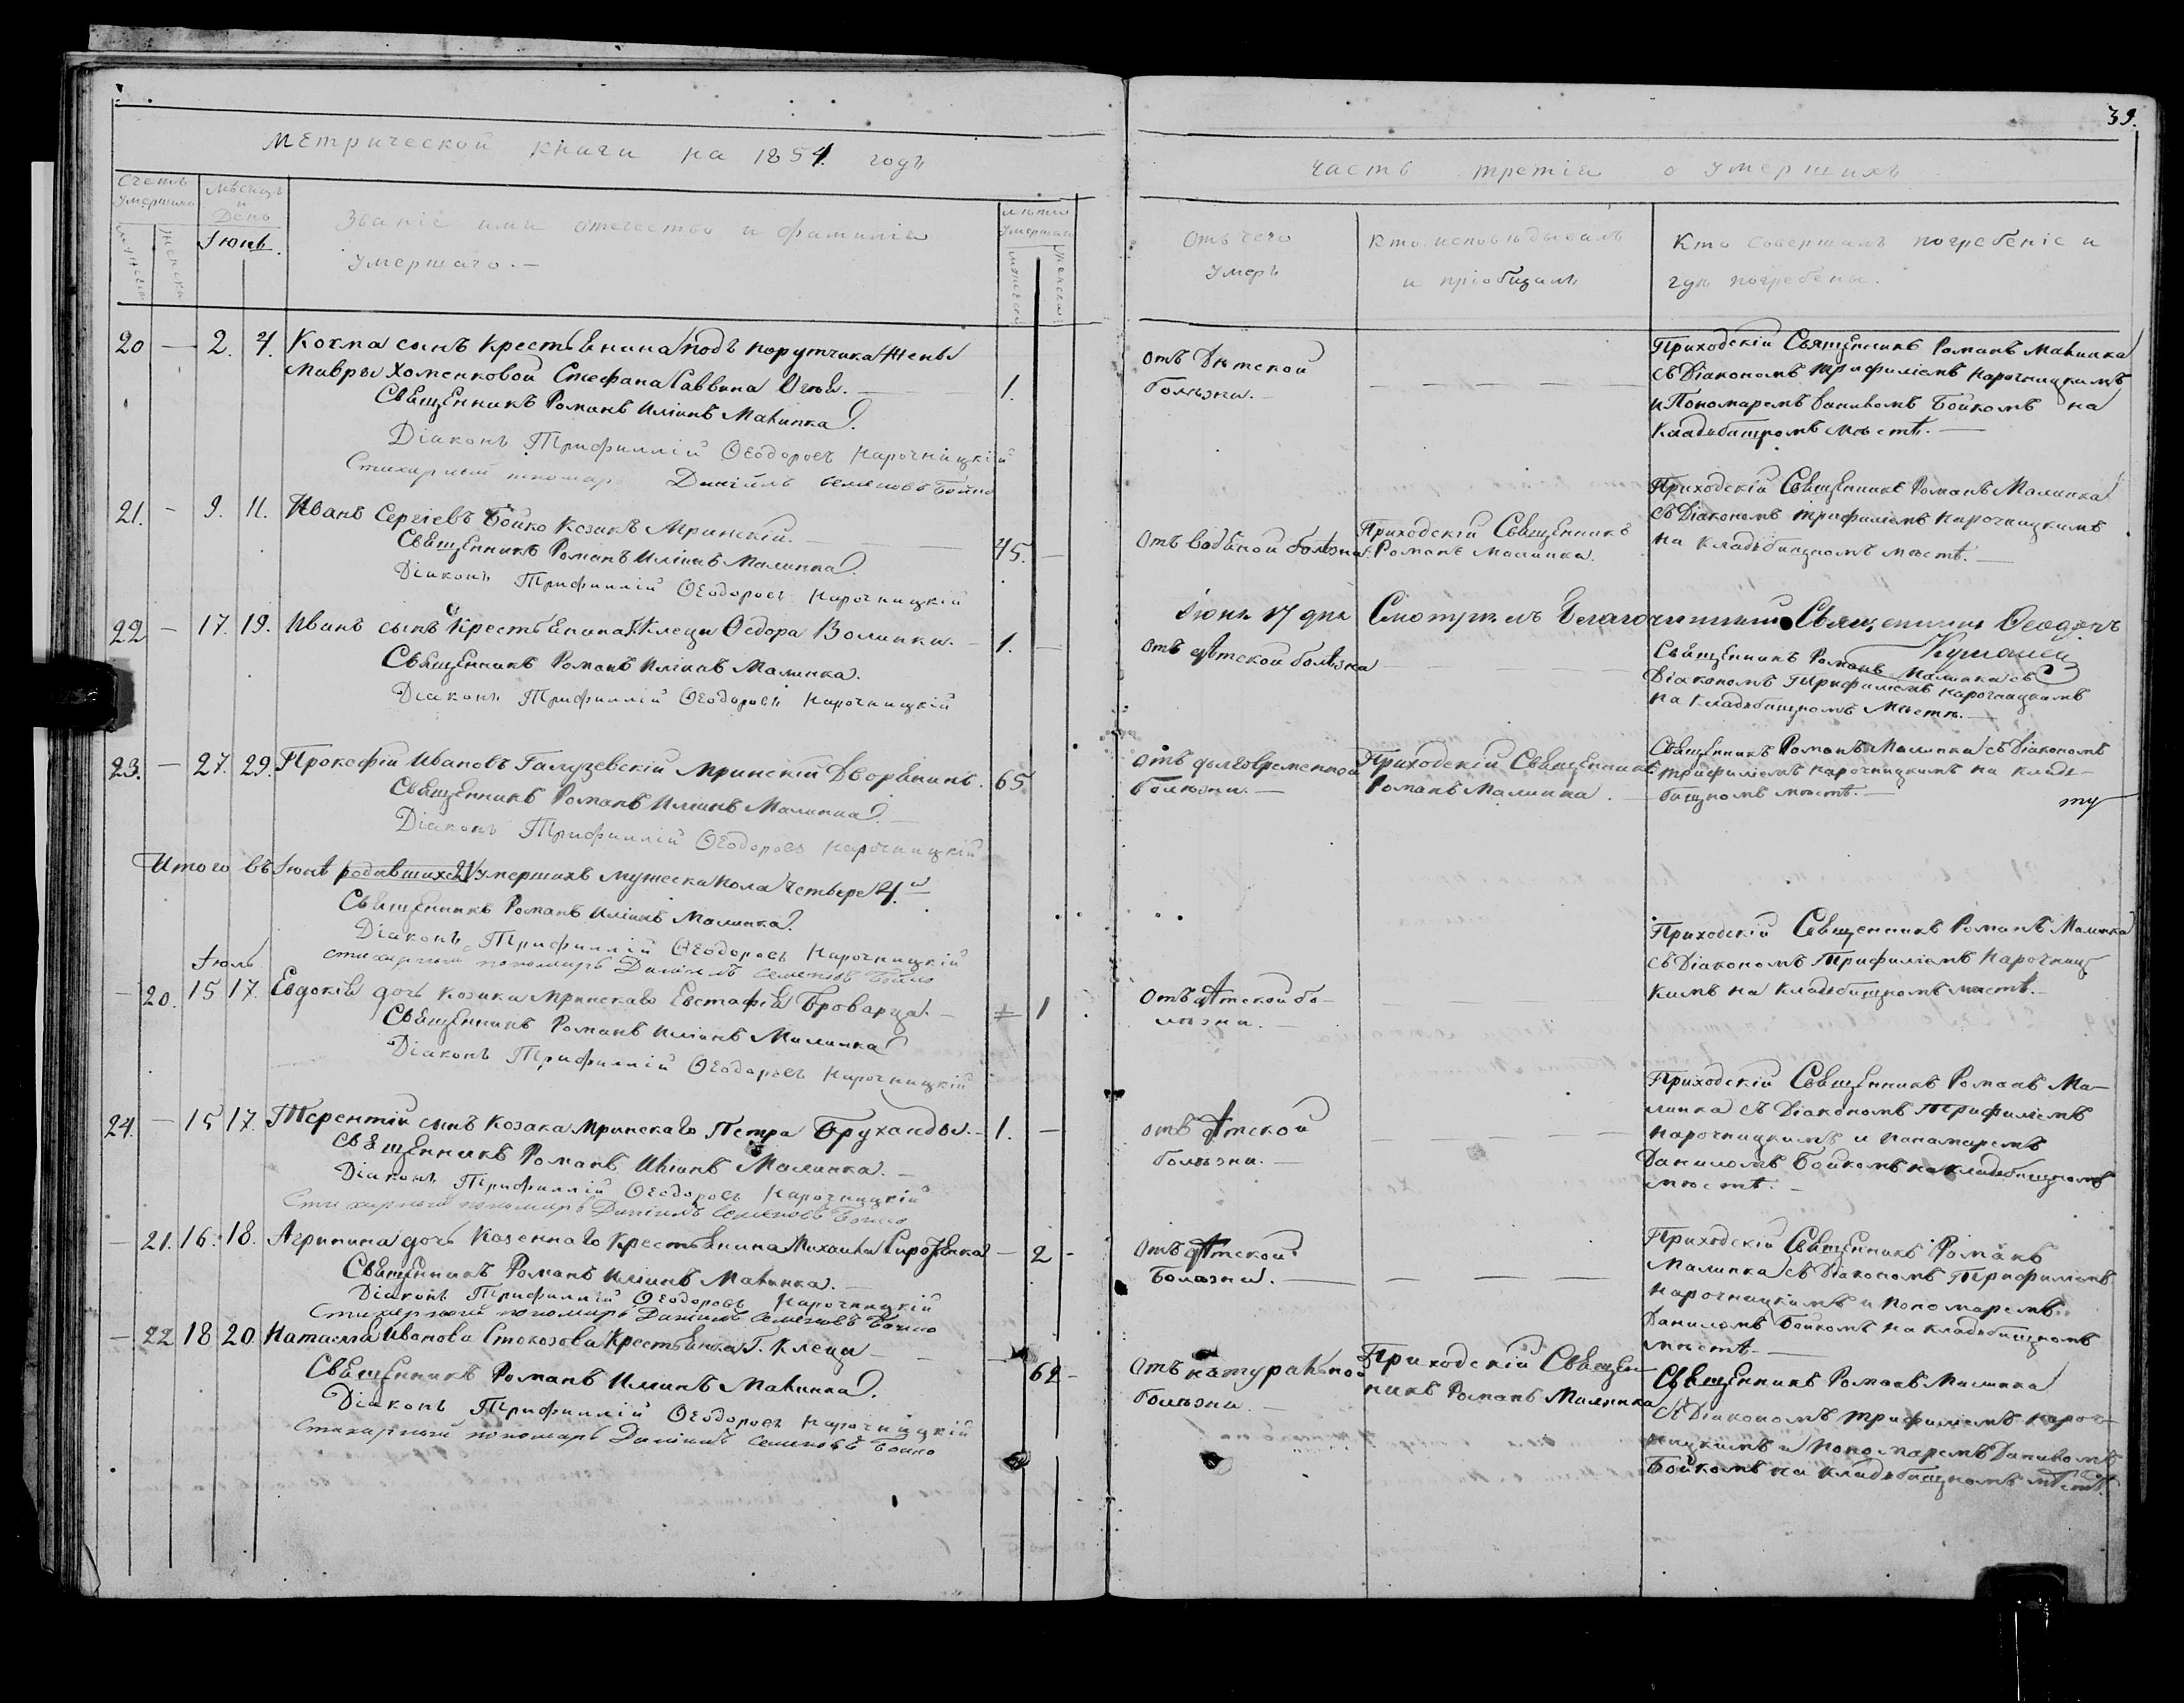 Метрической книги на 1854 годъ
Счетъ умершихъ
Мѣсяцъ и День
Іюнь.
Званіе имя отечество и фамилія
умершаго. —
лѣта умершаго
20 — 2. 4. Косма сынъ крестьянина подъ порутчика жены
Мавры Хоменковой Стефана Саввина
1.
Священникъ Романъ Иліинъ Малинка.
Діаконъ Трифиллій Ѳеодоровъ Нарочницкій
Стихарный пономарь Даніилъ Семеновъ Бойко
21. — 9. 11. Иванъ Сергіевъ Бойко козакъ Мринскій. 45. —
Священникъ Романъ Иліинъ Малинка.
Діаконъ Трифиллій Ѳеодоровъ Нарочницкій
22 — 17. 19. Иванъ сынъ Крестьянина Г. Клеци Ѳедора Волинки. — 1. —
Священникъ Романъ Иліинъ Малинка.
Діаконъ Трифиллій Ѳеодоровъ Нарочницкій
23. — 27. 29. Прокофій Ивановъ Галузевскій Мринскій Дворянинъ. 65
Священникъ Романъ Иліинъ Малинка.
Діаконъ Трифиллій Ѳеодоровъ Нарочницкій
Итого въ Іюнѣ родившихся умершихъ мужеска пола четыре 4.
Священникъ Романъ Иліинъ Малинка.
Діаконъ Трифиллій Ѳеодоровъ Нарочницкій
Стихарный пономарь Даніилъ Семеновъ Бойко
Іюль
— 20. 15 17. Евдокія дочь козака Мринскаго Евстафія Броварца. — 1
Священникъ Романъ Иліинъ Малинка
Діаконъ Трифиллій Ѳеодоровъ Нарочницкій
24. — 15 17. Терентій сынъ козака Мринскаго Петра Бруханды. — 1. —
Священникъ Романъ Иліинъ Малинка. —
Діаконъ Трифиллій Ѳеодоровъ Нарочницкій
Стихарный пономарь Даніилъ Семеновъ Бойко
— 21. 16. 18. Агрипина дочь казеннаго крестьянина Михаила — 2 —
Священникъ Романъ Иліинъ Малинка. —
Діаконъ Трифиллій Ѳеодоровъ Нарочницкій
Стихарный пономарь Даніилъ Семеновъ Бойко
— 22 18 20. Наталія Иванова Стокозова Крестьянка Г. Клеци — 62 —
Священникъ Романъ Иліинъ Малинка.
Діаконъ Трифиллій Ѳеодоровъ Нарочницкій
Стихарный пономарь Даніилъ Семеновъ Бойко
39.
Часть третія о умершихъ
Отъ чего
умеръ
Кто исповѣдывалъ
и пріобщалъ
Кто совершалъ погребеніе и
гдѣ погребены.
Отъ дѣтской
болѣзни. —
Приходскій Священникъ Романъ Малинка
съ Діакономъ Трифиліемъ Нарочницкимъ
и Пономаремъ Даниломъ Бойкомъ на
кладьбищномъ мѣстѣ. —
Отъ водяной болѣзни.
Приходскій Священникъ
Романъ Малинка.
Приходскій Священникъ Романъ Малинка
съ Діакономъ Трифиліемъ Нарочницкимъ
на кладьбищномъ мѣстѣ. —
Іюня 17 дня Смотрѣлъ Благочинный Священникъ Ѳеодоръ
Отъ дѣтской болѣзни
Священникъ Романъ Малинка съ
Діакономъ Трифиліемъ Нарочницкимъ
на кладьбищномъ мѣстѣ. —
Отъ долговременной
болѣзни. —
Приходскій Священникъ
Романъ Малинка. —
Священникъ Романъ Малинка съ Діакономъ
Трифиліемъ Нарочницкимъ на кладь-
бищномъ мѣстѣ. —
Отъ дѣтской бо-
лѣзни.
Приходскій Священникъ Романъ Малинка
съ Діакономъ Трифиліемъ Нарочниц-
кимъ на кладьбищномъ мѣстѣ. —
Отъ дѣтской
болѣзни. —
Приходскій Священникъ Романъ Ма-
линка съ Діакономъ Трифиліемъ
Нарочницкимъ и панамаремъ
Даниломъ Бойкомъ на кладьбищномъ
мѣстѣ. —
Отъ дѣтской
болѣзни. —
Приходскій Священникъ Романъ
Малинка съ Діакономъ Трифиліемъ
Нарочницкимъ и пономаремъ
Даниломъ Бойкомъ на кладьбищномъ
мѣстѣ. —
Отъ натуральной
болѣзни. —
Приходскій Священ-
никъ Романъ Малинка
Священникъ Романъ Малинка
съ Діакономъ Трифиліемъ Нароч-
ницкимъ и пономаремъ Даниломъ
Бойкомъ на кладьбищномъ мѣстѣ.